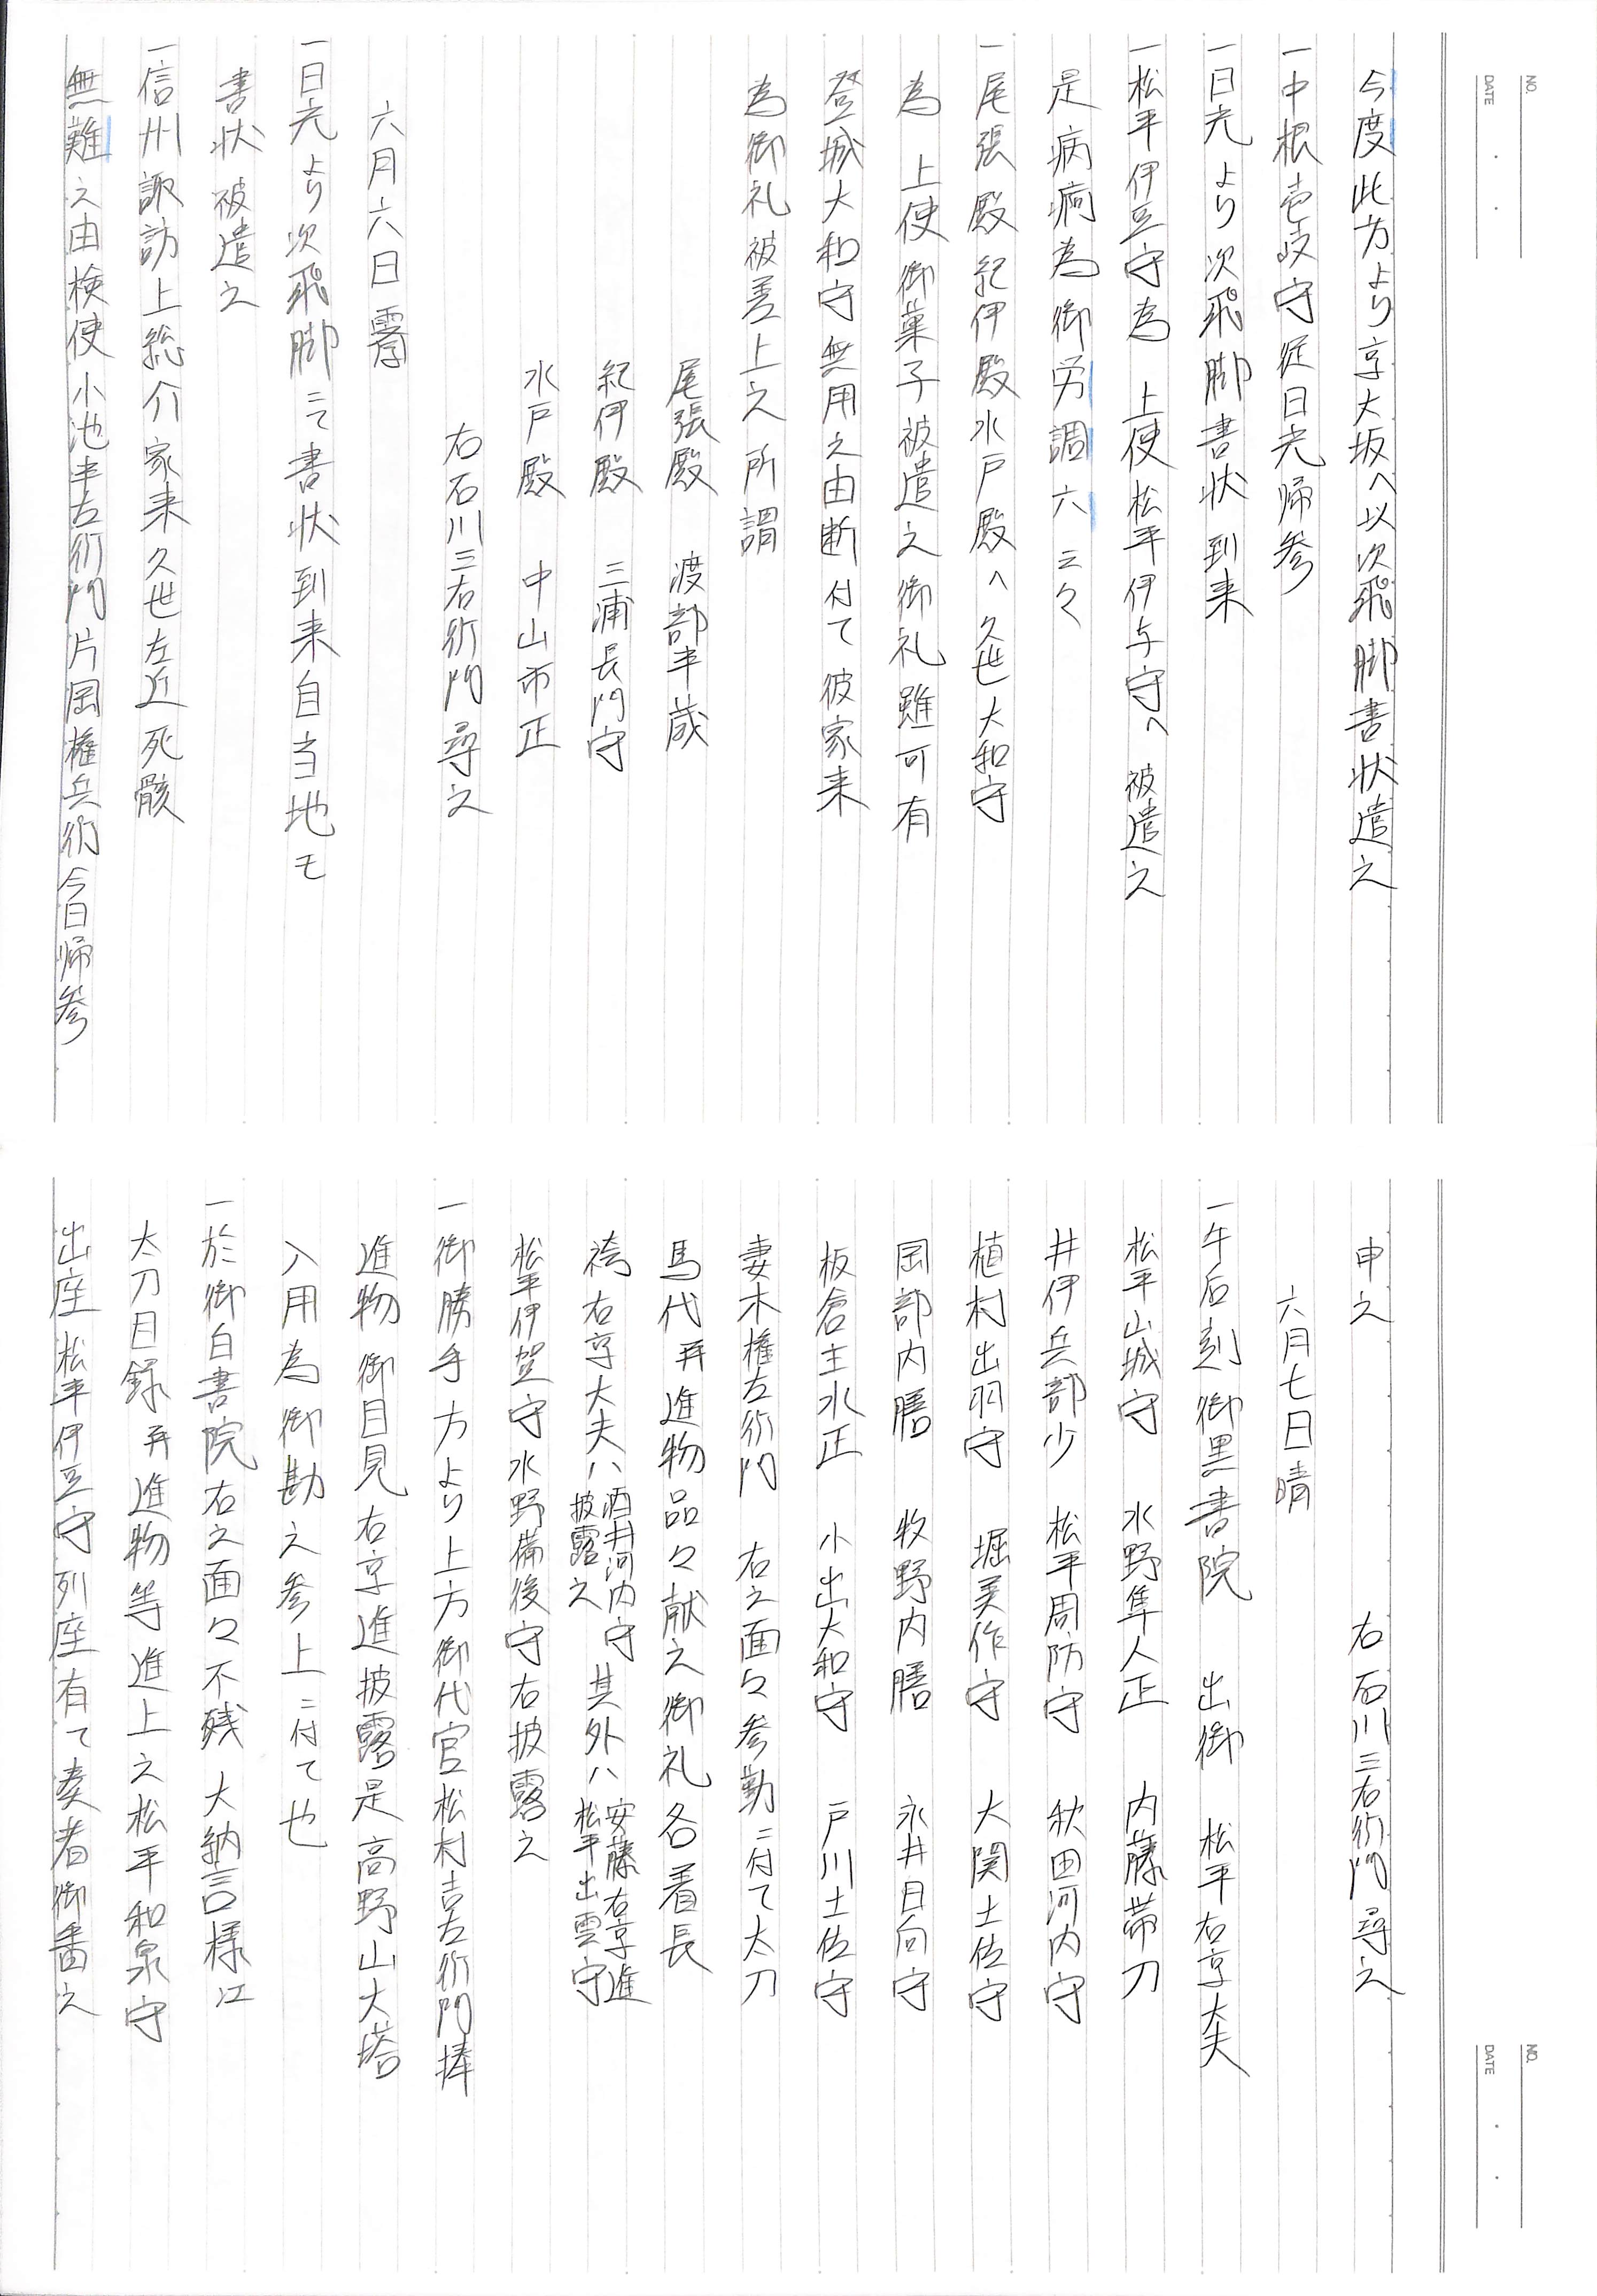 NO.
DATE
今度此方より京大坂へ以次飛脚書状遣之
一中根壱岐守従日光帰参
一日光より次飛脚書状到来
一松平伊豆守為 上使松平伊与守へ 被遣之
是病痾為御労調六云々
一尾張殿紀伊殿水戸殿へ久世大和守
為 上使御菓子被遣之御礼雖可有
登城大和守無用之由断付て彼家来
為御礼被差上之所謂
尾張殿 渡部半蔵
紀伊殿 三浦長門守
水戸殿 中山市正
右石川三右衛門尋之
六月六日霽
一日光より次飛脚ニて書状到来自当地モ
書状被遣之
一信州諏訪上総介家来久世左近死骸
無難之由検使小池半左衛門片岡権兵衛今日帰参
NO.
DATE
申之 右石川三右衛門尋之
六月七日晴
一午后刻御黒書院 出御 松平右京大夫
松平山城守 水野隼人正 内藤帯刀
井伊兵部少 松平周防守 秋田河内守
植村出羽守 堀美作守 大関土佐守
岡部内膳 牧野内膳 永井日向守
板倉主水正 小出大和守 戸川土佐守
妻木権左衛門 右之面々参勤ニ付て太刀
馬代并進物品々献之御礼各着長
袴右京大夫ハ酒井河内守披露之其外ハ安藤右京進松平出雲守
松平伊賀守水野備後守右披露之
一御勝手方より上方御代官松村吉左衛門捧
進物御目見右京進披露是高野山大塔
入用為御勘之参上ニ付て也
一於御白書院右之面々不残 大納言様江
太刀目録并進物等進上之松平和泉守
出座松平伊豆守列座有て奏者御番之